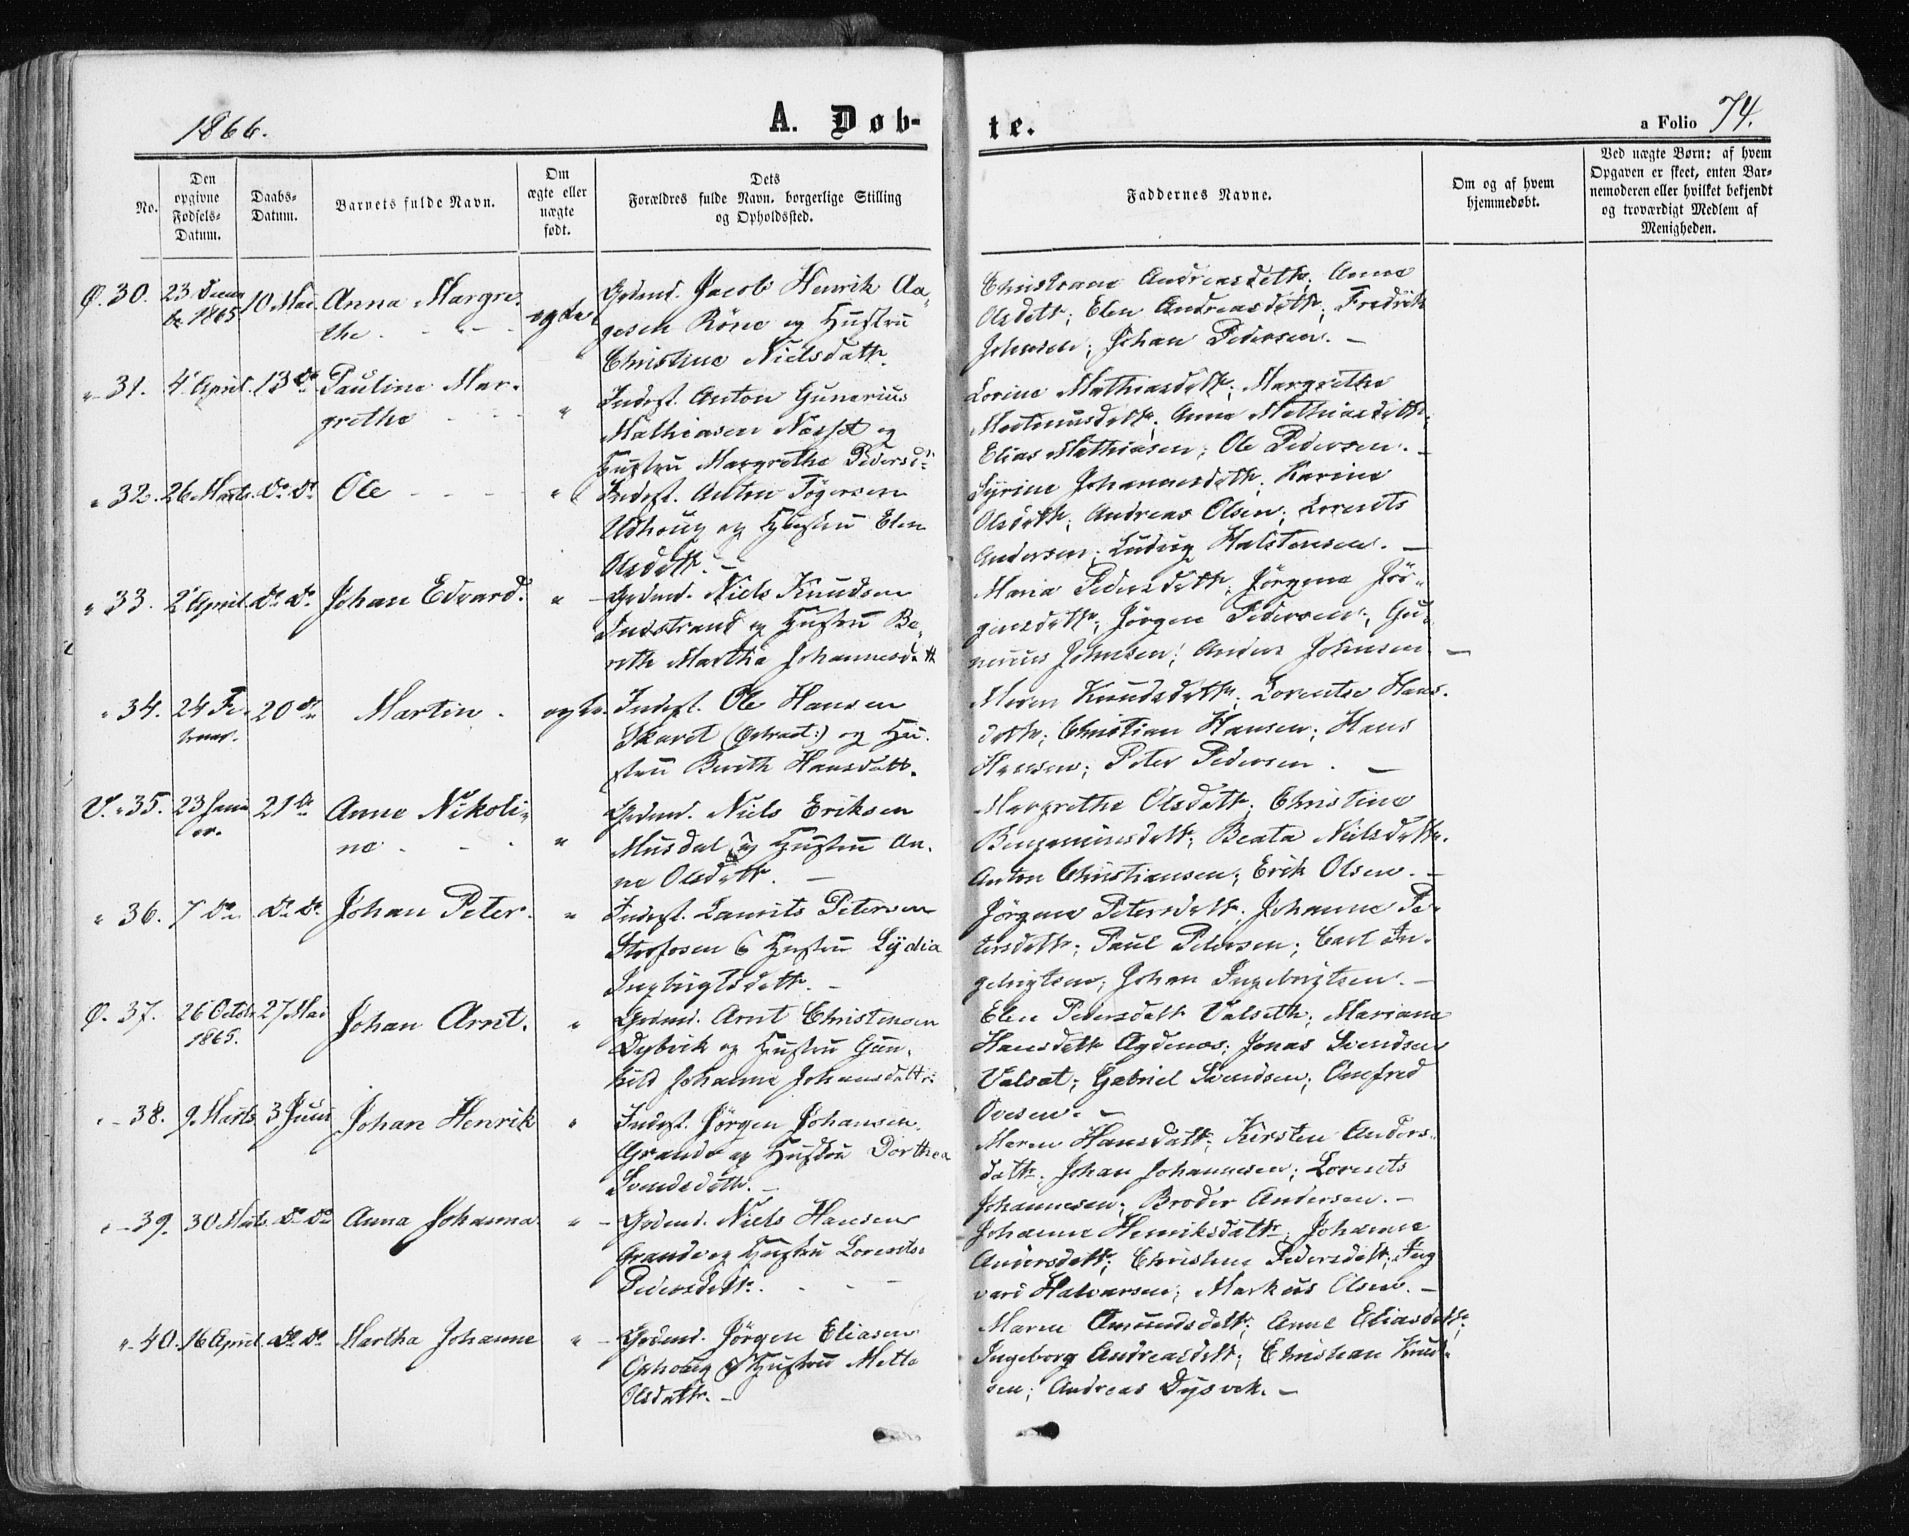 1866.
A. Døb-
te.
a Folio 74.
No.
Den opgivne Fødsels-Datum.
Daabs-Datum.
Barnets fulde Navn.
Om ægte eller uægte født.
Dets Forældres fulde Navn, borgerlige Stilling og Opholdssted.
Faddernes Navne.
Om og af hvem hjemmedøbt.
Ved uægte Børn: af hvem Opgaven er skeet, enten Barnemoderen eller hvilket bekjendt og troværdigt Medlem af Menigheden.
Ø. 30. 23 Decem 10 Mai Anna Margre- ægte Grdmd. Jacob Henrik Aa-
br 1865 the. gesen Röne og Hustru
Christine Nielsdatt.
Christiane Andreasdatt; Anna
Olsdatt; Elen Andreasdatt; Fredrik
Johnsen; Johan Pedersen. —
" 31. 4 April. 13 do Pauline Mar- " Inderst. Anton Gunerius
grethe Mathiasen Næsset og
Hustru Margrethe Pedersd.
Lorine Mathiasdatt; Margrethe
Mortinusdatt; Anna Mathiasdatt;
Elias Mathiasen; Ole Pedersen. —
" 32. 26 Marts. do do Ole " Inderst. Anton Tögersen
Udhoug og Hustru Elen
Olsdatt. —
Syrine Johannesdatt; Karine
Olsdatt; Andreas Olsen; Lorents
Andersen; Ludvig Halstensen. —
" 33. 2 April. do do Johan Edvard. " Grdmd. Niels Knudsen
Indstrand og Hustru Be-
reth Martha Johannesdatt
Maria Pedersdatt; Jörgine Jör-
ginsdatt; Jörgen Pedersen; Gu-
nerius Johnsen; Anders Johnsen —
" 34. 24 Fe- 20 do Martin. ægte. Inderst. Ole Hansen
bruar. Skaret (Østraat:) og Hu-
stru Berith Hansdatt.
Maren Knudsdatt; Lorentse Hans-
datt; Christian Hansen; Hans
Hansen; Peter Pedersen. —
V. " 35. 23 Janu 21 do Anne Nikoli- " Grdmd. Niels Eriksen
ar. ne Musdal og Hustru An-
ne Olsdatt. —
Margrethe Olsdatt; Christine
Benjaminsdatt; Beata Nielsdatt.
Anton Christiansen; Erik Olsen. —
" 36. 7 do do do Johan Peter. " Inderst. Laurits Petersen
Storfosen & Hustru Lydia
Ingbrigtsdatt. —
Jörgine Petersdatt; Johanna Pe-
tersdatt; Paul Petersen; Carl In-
gebrigtsen; Johan Ingebrigtsen. —
Ø. 37. 26 Octob 27 Mai Johan Arnt. " Grdmd. Arnt Christensen
1865. Dybvik og Hustru Gun-
hild Johanna Johansdatt.
Elen Pedersdatt Valseth; Mariane
Hansdatt Agdenes; Jonas Svendsen
Valsat; Gabriel Svendsen; Onefred
Ovesen. —
" 38. 9. Marts 3 Juni Johan Henrik " Inderst. Jörgen Johansen
Grande og Hustru Dorthea
Svendsdatt. —
Maren Hansdatt; Kirsten Anders-
datt; Johan Johannesen; Lorents
Johannesen; Broder Andersen. —
" 39. 30 Marts. do do Anna Johanna. " Grdmd. Niels Hansen
Grande og Hustru Lorentse
Pedersdatt.
Johanne Henriksdatt; Johanna
Andersdatt; Christine Pedersdatt; Ing-
vard Halvarsen; Markus Olsen. —
" 40. 16 April. do do Martha Johanne " Grdmd. Jörgen Eliasen
Ophoug og Hustru Mette
Olsdatt. —
Maren Amundsdatt; Anne Eliasdatt;
Ingeborg Andreasdatt; Christian Knud-
sen; Andreas Dysvik. —